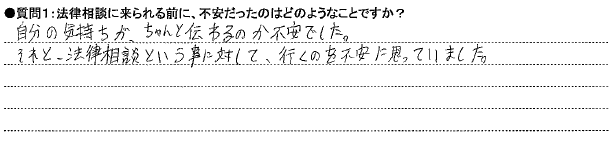 ●質問1：法律相談に来られる前に、不安だったのはどのようなことですか？
自分の気持ちが、ちゃんと伝わるのか不安でした。
それと、法律相談という事に対して、行くのを不安に思っていました。